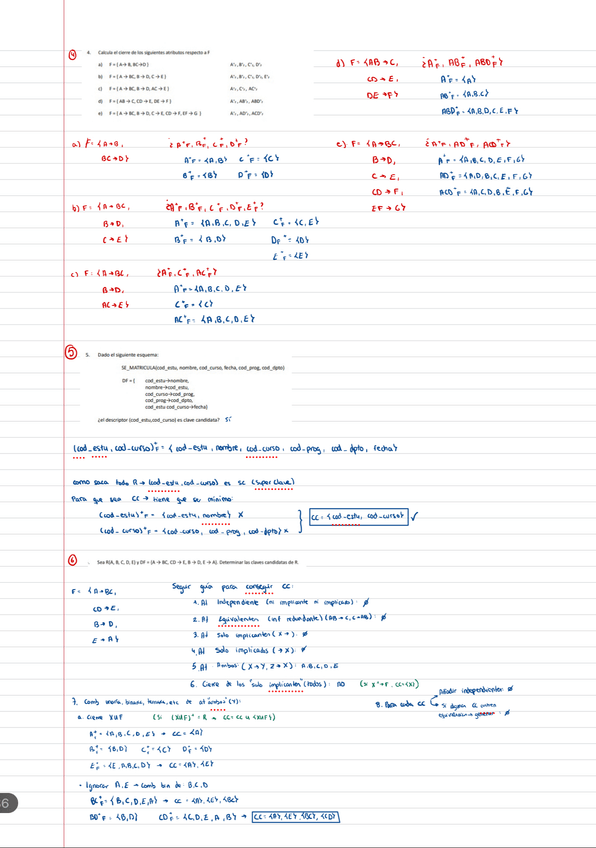 4
4. Calcula el cierre de los siguientes atributos respecto a F
a) F = { A→ B, BC→D } A⁺F, B⁺F, C⁺F, D⁺F
b) F = { A → BC, B → D, C → E } A⁺F, B⁺F, C⁺F, D⁺F, E⁺F
c) F = { A → BC, B → D, AC → E } A⁺F, C⁺F, AC⁺F
d) F = { AB → C, CD → E, DE → F } A⁺F, AB⁺F, ABD⁺F
e) F = { A → BC, B → D, C → E, CD → F, EF → G } A⁺F, AD⁺F, ACD⁺F
d) F = {AB → C, ¿A⁺F, AB⁺F, ABD⁺F}
CD → E, A⁺F = {A}
DE → F} AB⁺F = {A,B,C}
ABD⁺F = {A,B,D,C,E,F}
a) F = {A→B, ¿A⁺F, B⁺F, C⁺F, D⁺F?
BC→D} A⁺F = {A,B} C⁺F = {C}
B⁺F = {B} D⁺F = {D}
e) F = {A→BC, ¿A⁺F, AD⁺F, ACD⁺F}
B→D, A⁺F = {A,B,C,D,E,F,G}
C→E, AD⁺F = {A,D,B,C,E,F,G}
CD→F, ACD⁺F = {A,C,D,B,E,F,G}
EF→G}
b) F = {A→BC, ¿A⁺F, B⁺F, C⁺F, D⁺F, E⁺F?
B→D, A⁺F = {A,B,C,D,E} C⁺F = {C,E}
C→E} B⁺F = {B,D} DF⁺ = {D}
E⁺F = {E}
c) F: {A→BC, ¿A⁺F, C⁺F, AC⁺F}
B→D, A⁺F = {A,B,C,D,E}
AC→E} C⁺F = {C}
AC⁺F = {A,B,C,D,E}
5
5. Dado el siguiente esquema:
SE_MATRICULA(cod_estu, nombre, cod_curso, fecha, cod_prog, cod_dpto)
DF = { cod_estu→nombre,
nombre→cod_estu,
cod_curso→cod_prog,
cod_prog→cod_dpto,
cod_estu cod_curso→fecha}
¿el descriptor (cod_estu,cod_curso) es clave candidata? Sí
(cod_estu, cod_curso)⁺F = {cod_estu, nombre, cod_curso, cod_prog, cod_dpto, fecha}
como saca todo R → (cod_estu, cod_curso) es SC (Super Clave)
Para que sea CC → tiene que ser mínimo:
(cod-estu)⁺F = {cod-estu, nombre} X
(cod_curso)⁺F = {cod-curso, cod_prog, cod-dpto} X
CC = {cod-estu, cod-curso} ✓
6
. Sea R(A, B, C, D, E) y DF = {A → BC, CD → E, B → D, E → A}. Determinar las claves candidatas de R.
F = {A→BC,
CD→E,
B→D,
E→A}
Seguir guía para conseguir CC:
1. At Independiente (ni implicante ni implicado): ∅
2. At Equivalentes (inf redundante) (AB→C, C→AB): ∅
3. At Solo implicantes (X→): ∅
4. At Solo implicados (→X): ∅
5. At Ambos: (X→Y, Z→X): A,B,C,D,E
6. Cierre de los "solo implicantes" (todos): NO (si X⁺=F, CC={X})
7. Comb unaria, binaria, ternaria, etc de at "ambos" (Y):
a. Cierre XUF (Si (XUF)⁺ = R → CC = CC U {XUF})
A⁺F = {A,B,C,D,E} → CC = {A}
B⁺F = {B,D} C⁺F = {C} D⁺F = {D}
E⁺F = {E,A,B,C,D} → CC = {A},{E}
8. Para cada CC
Añadir independientes: ∅
• Ignorar A,E → Comb bin de B,C,D
BC⁺F = {B,C,D,E,A} → CC = {A},{E},{BC}
BD⁺F = {B,D} CD⁺F = {C,D,E,A,B} → CC={A},{E},{BC},{CD}